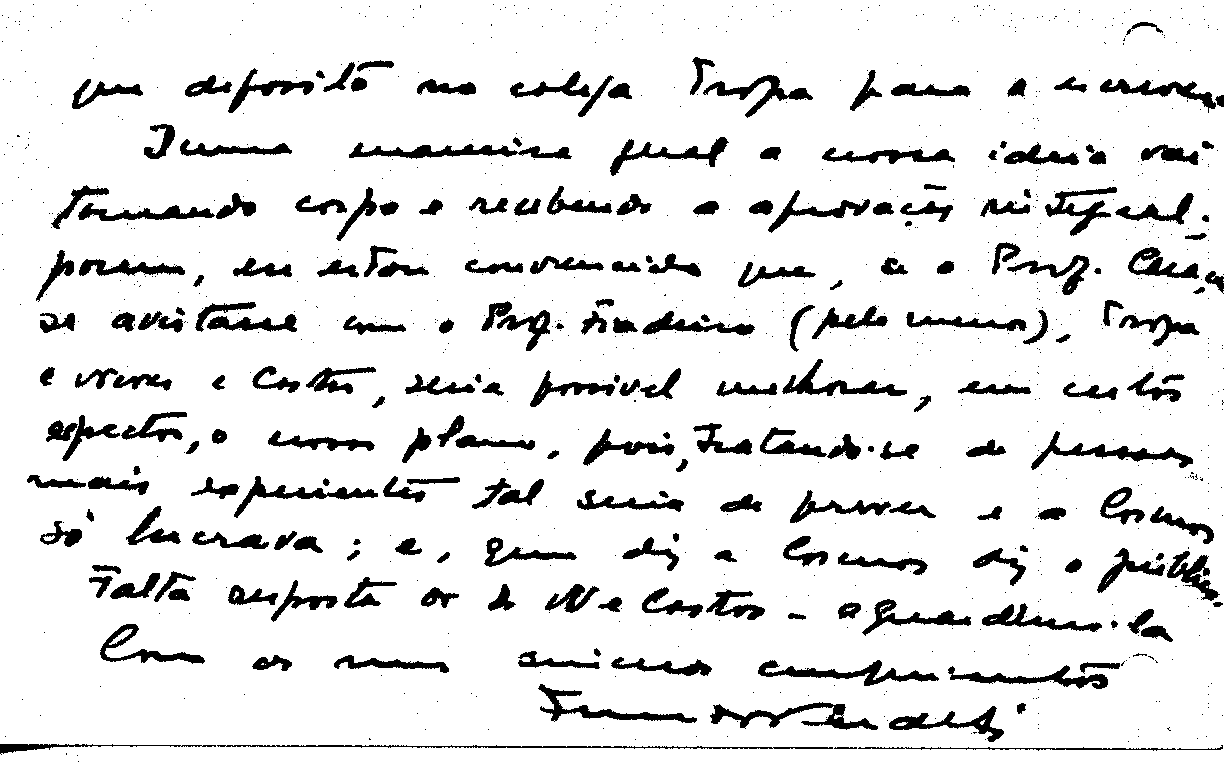 que deposito no colega Tropa para a
Duma maneira geral a nossa ideia vai
tomando corpo e recebendo a aprovação integral;
porem, eu estou convencido que, se o Prof. Caraça
se avistasse com o Prof. Fradeiro (pelo menos), Tropa
e Neves e Costa, seria possivel melhorar, em certos
aspectos, o novo plano, pois, tratando-se de pessoas
mais experientes tal seria de prever e a Cosmos
só lucrava; e, quem diz a Cosmos diz o público.
Falta resposta do N e Castro - aguardemo-la
Com os meus sinceros cumprimentos